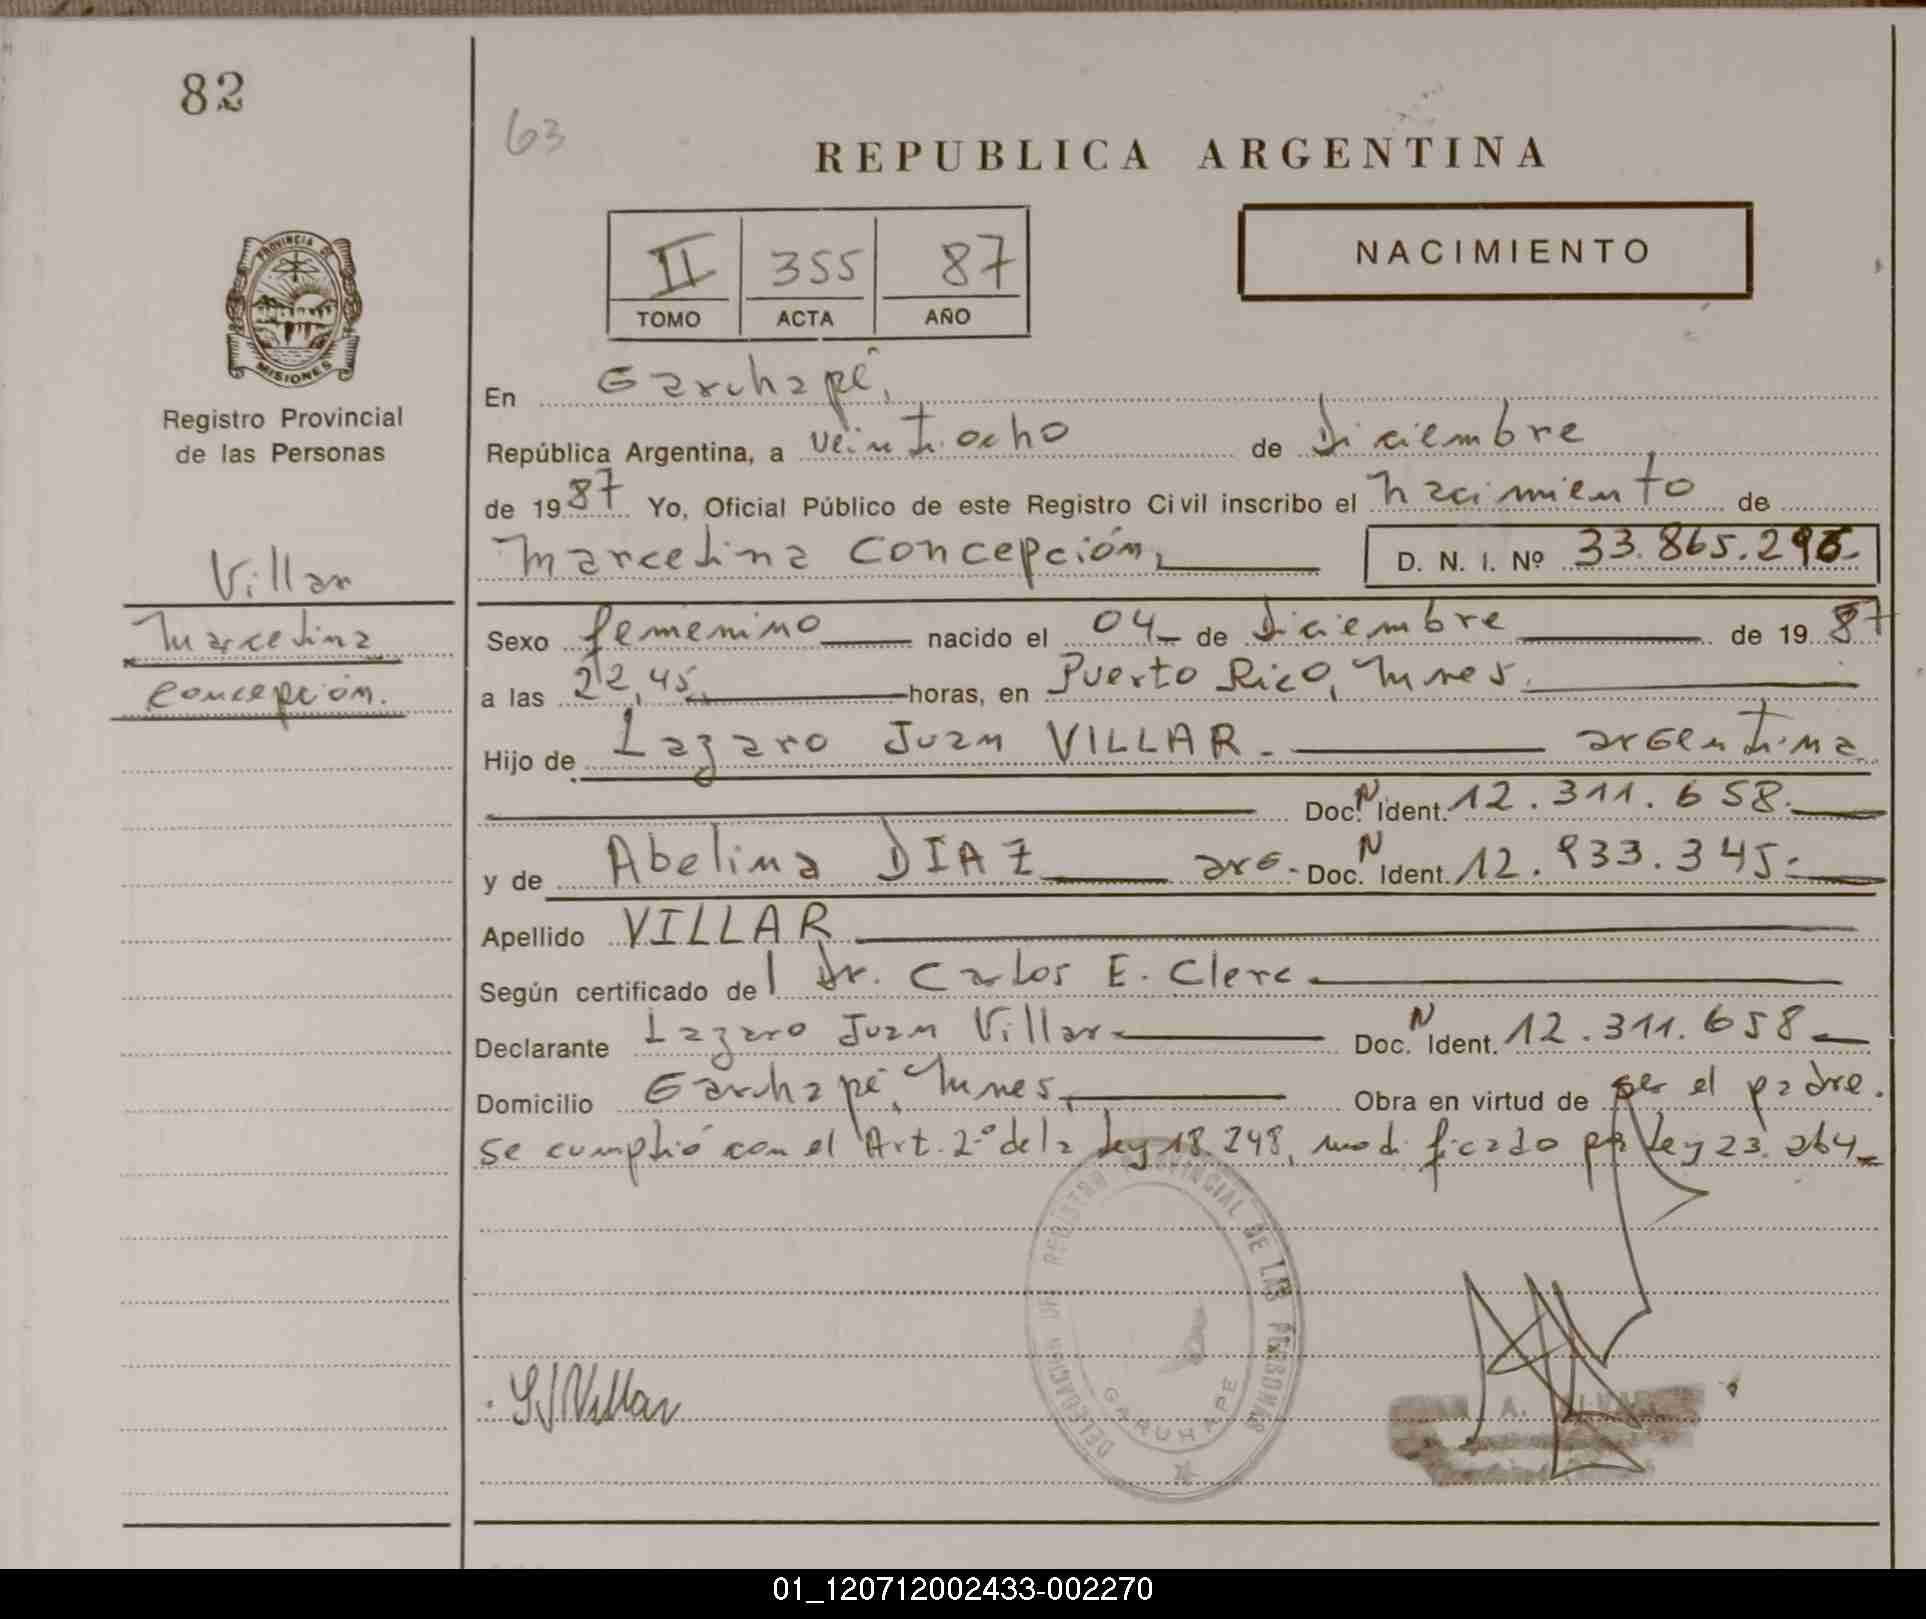 82
63
REPUBLICA ARGENTINA
II 355 87
TOMO ACTA AÑO
NACIMIENTO
PROVINCIA DE
MISIONES
Registro Provincial
de las Personas
Villar
Marcelina
Concepción.
En Garuhapé,
República Argentina, a veintiocho de diciembre
de 1987 Yo, Oficial Público de este Registro Civil inscribo el nacimiento de
Marcelina Concepción, D. N. I. Nº 33.865.296.
Sexo femenino nacido el 04 de diciembre de 1987
a las 22,45, horas, en Puerto Rico, Mnes.
Hijo de Lazaro Juan VILLAR. argentina
Doc. N Ident. 12.311.658.
y de Abelina DIAZ arg. Doc. N Ident. 12.933.345.
Apellido VILLAR
Según certificado del Dr. Carlos E. Clerc
Declarante Lazaro Juan Villar Doc. N Ident. 12.311.658
Domicilio Garuhapé, Mnes, Obra en virtud de ser el padre.
Se cumplió con el Art. 2º de la ley 18.248, modificado por Ley 23.264
DELEGACION DEL REGISTRO PROVINCIAL DE LAS PERSONAS
GARUHAPE
LJVillar
A.
01_120712002433-002270